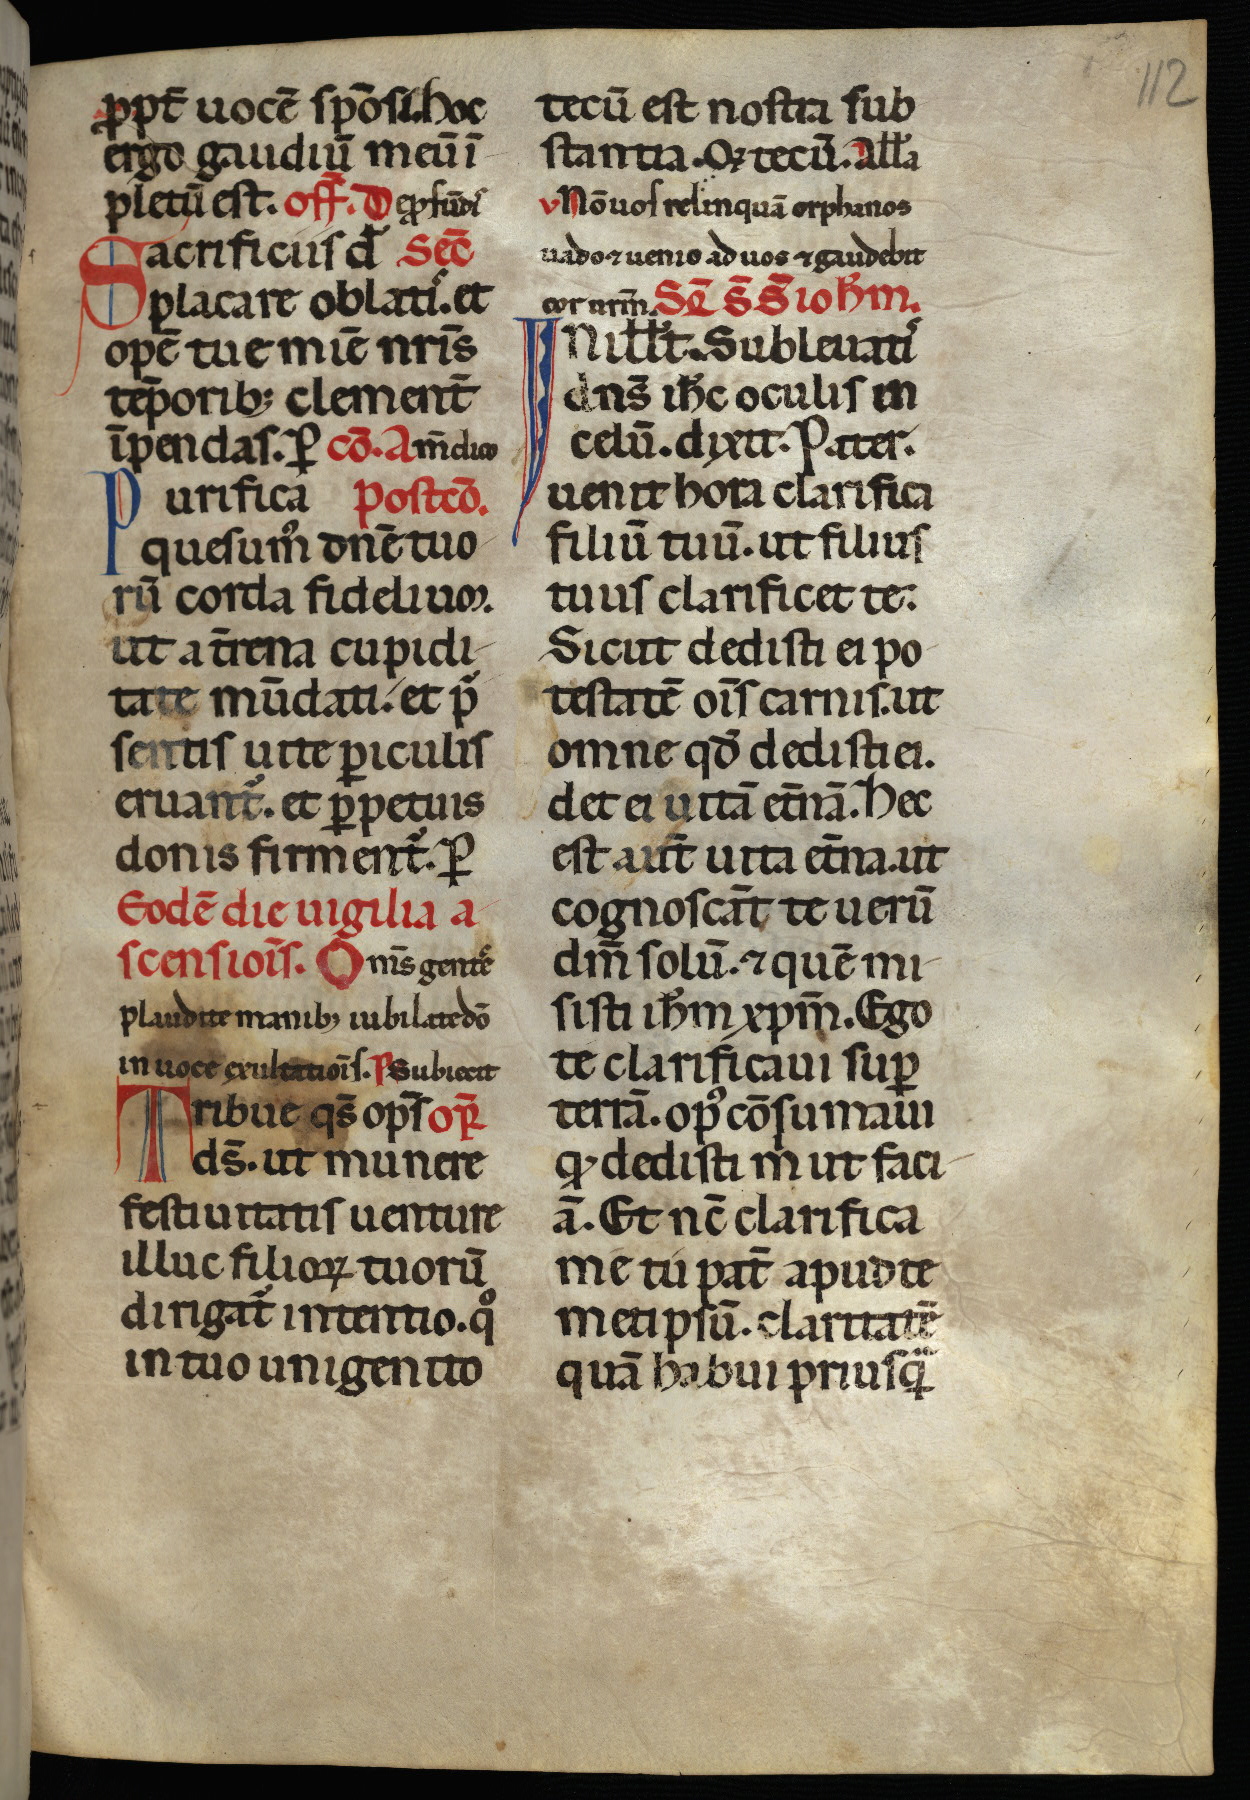 112
ꝓpt̄ uocē spōsi. hoc
ergo gaudiū meū ī
pletū est. off̄. De ꝓfūdis
Sacrificiis d̄ Sec̄
placare oblatis. et
opē tue mīe nr̄is
tēporibꝫ clement̄
īpendas. ꝑ cō. Am̄ dico
Purifica Postcō.
quesumꝰ dn̄e tuo
rū corda fidelium.
ut a t̄rena cupidi
tate mūdati. et p̄
sentis uite ꝑiculis
eruant̄. et ꝑpetuis
donis firment̄. ꝑ
Eodē die uigilia a
scensiois̄. Om̄s gentes
plaudite manibꝫ iubilate dō
in uoce exultatiois̄. P Subiecit
Tribue qs̄ op̄s op̄
ds̄. ut munere
festiuitatis uenture
illuc filioꝝ tuorū
dirigat̄ intentio. qͦ
in tuo unigenito
tecū est nostra sub
stantia. Qꝫ tecū. All'a
v Nō uos relinquā orphanos
uado ⁊ uenio ad uos ⁊ gaudebit
cor ur̄m. Sq̄ s̄ s̄ ioh̄m.
In ill̄ t̄. Subleuatis
dn̄s ih̄c oculis in
celū. dyxit. Pater.
uenit hora clarifica
filiū tuū. ut filius
tuus clarificet te.
Sicut dedisti ei po
testatē ois̄ carnis. ut
omne qd̄ dedisti ei.
det ei uitā et̄nā. Hec
est aut̄ uita et̄na. ut
cognoscāt te uerū
dm̄ solū. ⁊ quē mi
sisti ih̄m xpm̄. Ego
te clarificaui suꝑ
terrā. opꝰ cōsumaui
qꝫ dedisti m ut faci
ā. Et nc̄ clarifica
me tu pat̄ apud te
metipsū. claritatē
quā habui priusq̄